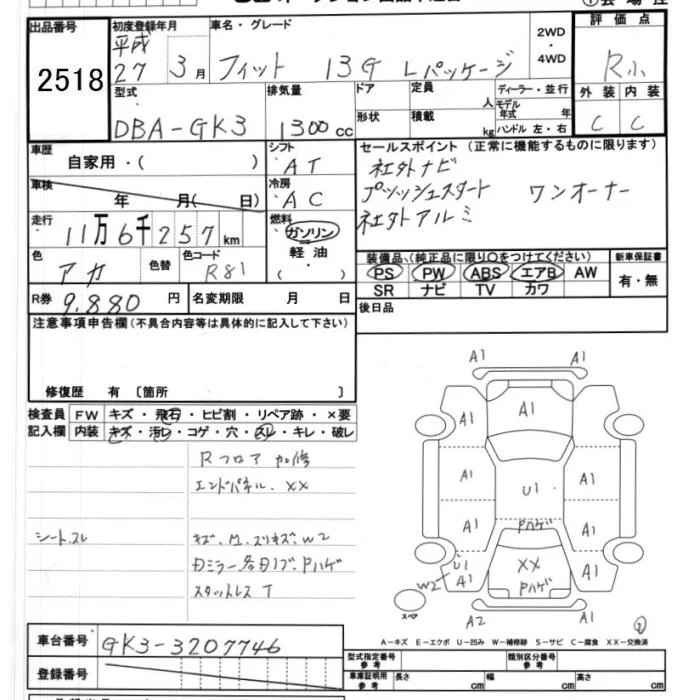 出品番号
2518
初度登録年月
平成
27 3月
車名・グレード
フィット 13G Lパッケージ
2WD
・
4WD
評価点
R小
外装 内装
C C
型式
DBA-GK3
排気量
1300cc
ドア
形状
定員
人
積載
kg
ディーラー・並行
モデル年式 年
ハンドル 左・右
車歴
自家用・( )
シフト
AT
セールスポイント (正常に機能するものに限ります)
社外ナビ
プッシュスタート ワンオーナー
社外アルミ
車検
年 月( 日)
冷房
AC
走行
11万6千257km
燃料
ガソリン
軽油
( )
色
アカ
色替
色コード
R81
装備品、(純正品に限り○をつけてください)
PS PW ABS エアB AW
SR ナビ TV カワ
新車保証書
有・無
R券 9,880円
名変期限 月 日
後日品
注意事項申告欄(不具合内容等は具体的に記入して下さい)
修復歴 有 〔箇所 〕
検査員
記入欄
FW キズ・飛石・ヒビ割・リペア跡・×要
内装 キズ・汚レ・コゲ・穴・スレ・キレ・破レ
Rフロア 加修
エンドパネル. XX
シート.スレ
キズ. M. スリキズ. W2
カミラー各カノブ. Pハゲ
スタットレス T
A1 A1
A1
A1
A1 A1
A1
U1
A1
A1 A1
Pハゲ
U1
W2 A1
XX
Pハゲ
A1
A1
スペア
A2 A1
A-キズ E-エクボ U-凹み W-補修跡 S-サビ C-腐食 XX-交換済
車台番号
GK3-3207746
登録番号
型式指定番号
参考
類別区分番号
参考
車庫証明用
参考
長さ cm
幅 cm
高さ cm